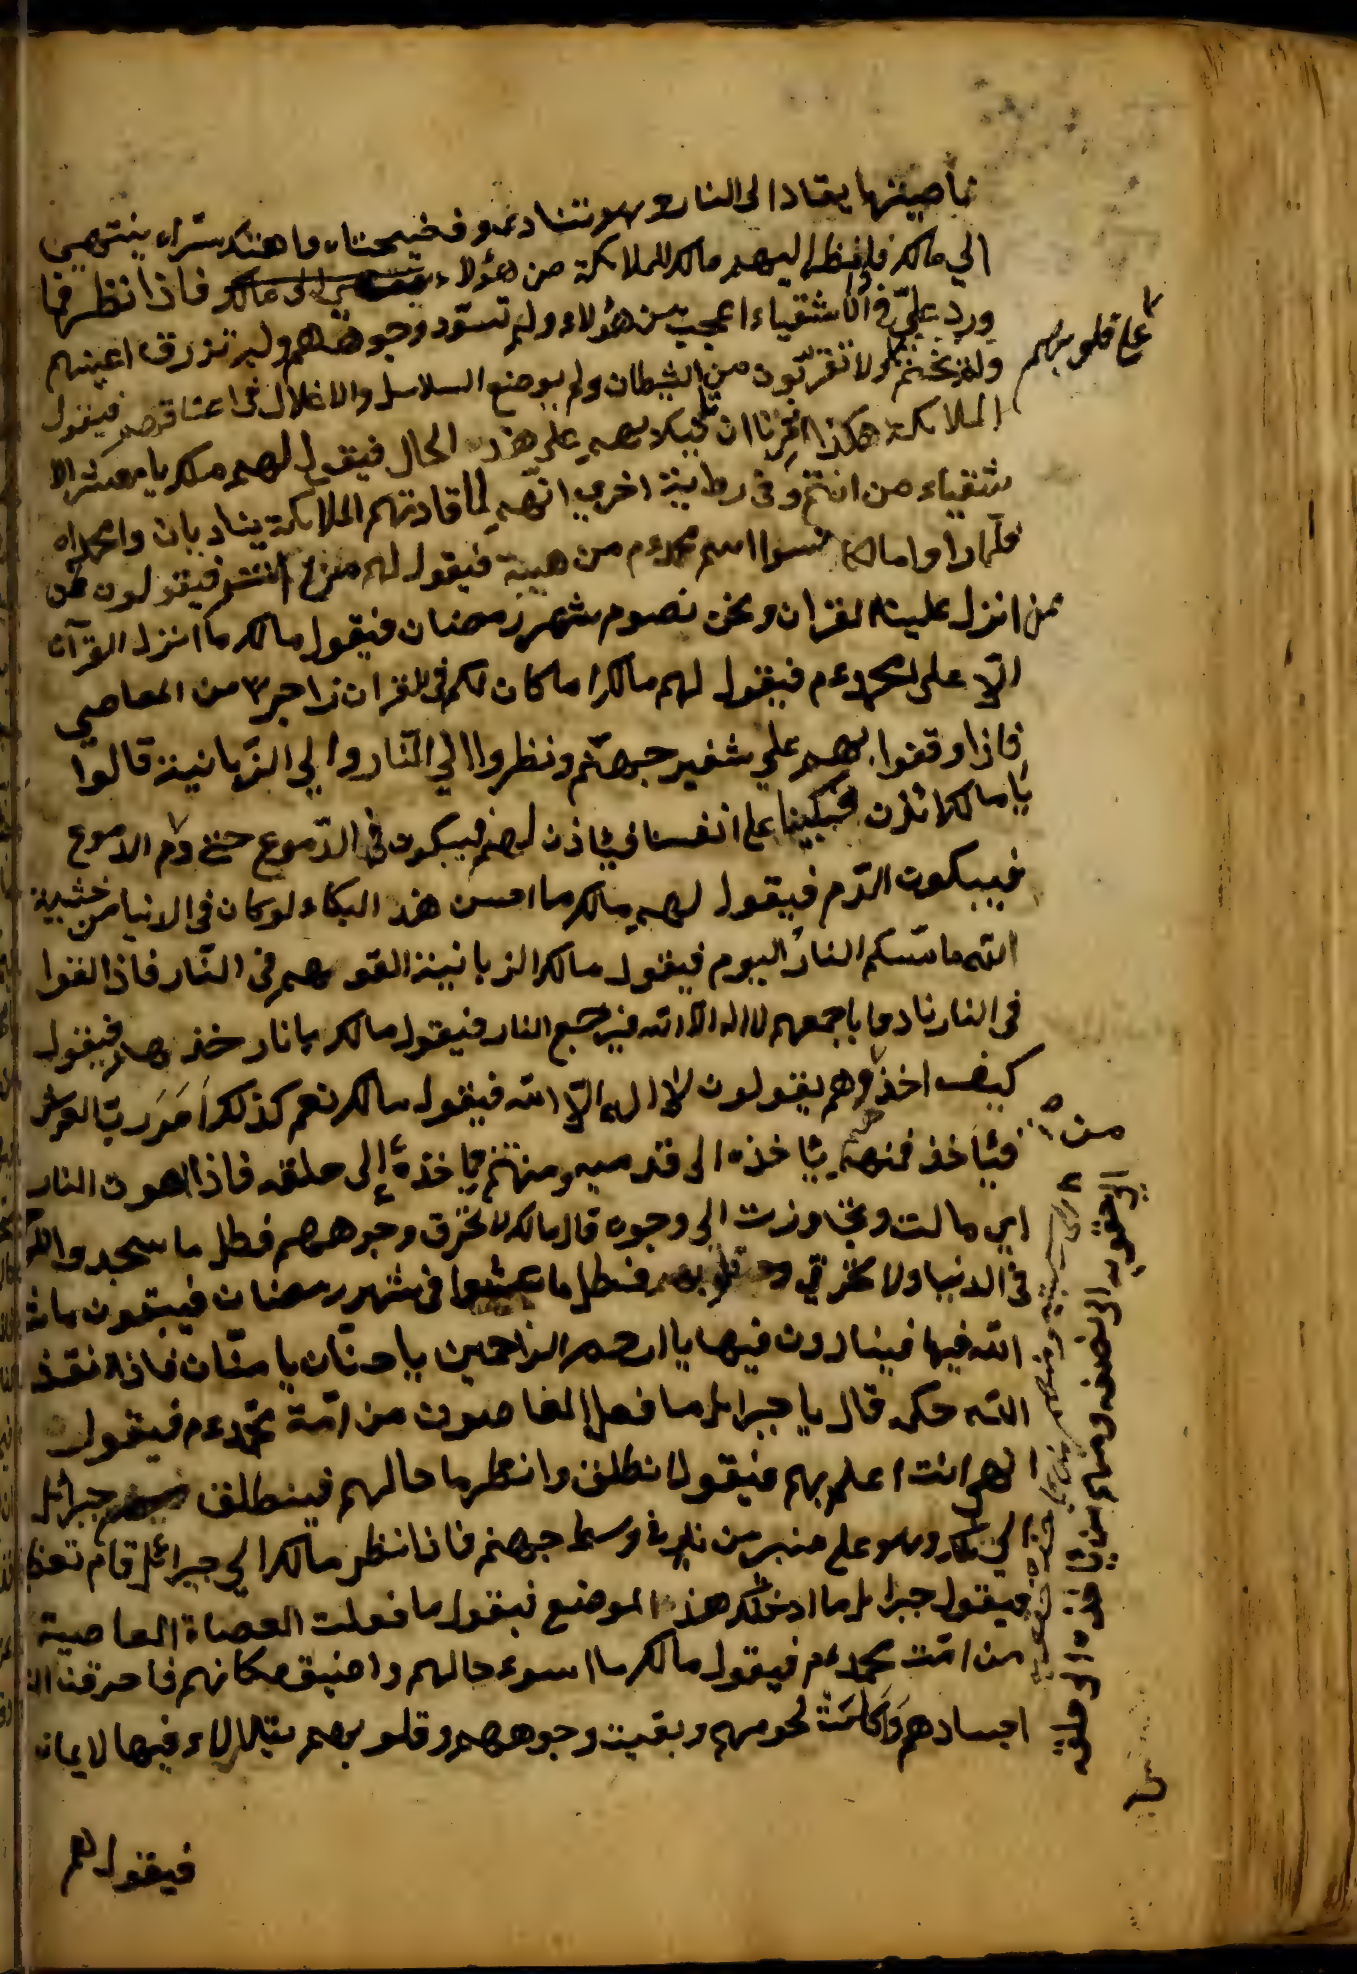 بناصيتها يقاد الى النار وهو تنادى وفضيحتاه واهتك ستراه ينتهى
الي مالك فاذا نظر اليهم مالك للملائكة من هؤلاء فاذا نظر فما
ورد عليّ في الاشقياء اعجب من هؤلاء ولم تسوّد وجوههم ولم تزرق اعينهم
ولم تختم ولا تقربون من الشيطان ولم يوضع السلاسل والاغلال فى اعناقهم فيقول
على قلوبهم
الملائكة هكذا امرنا ان بهم على هذه الحال فيقول لهم ملك يا معشر الا
شقياء من انتم وفى رواية اخري انهم لما قادتهم الملائكة ينادبان وامحمداه
فلما راوا مالك نسوا اسم محمد ءم من هيبة فيقول لهم من انتم فيقولون نحن
ممن انزل علينا القران ونحن نصوم شهر رمضان فيقول مالك ما انزل القرآن
الّا على محمد ءم فيقول لهم مالك اما كان لكم فى القران زاجرا من المعاصي
فاذا وقفوا بهم علي شفير جهنّم ونظروا الي النّار والي الزبانية قالوا
يا مالك ائذن فبكينا على انفسنا فيئاذن لهم فيبكون الدّموع حتى دم الدموع
فيبكون الدّم فيقول لهم مالك ما احسن هذ البكاء لو كان فى الدنيا من خشية
الله ما مسّكم النار اليوم فيقول مالك الزبانية القوهم فى النّار فاذا القوا
فى النار نادوا باجمعهم لا اله الّا الله فيرجع النار فيقول مالك يا نار خذ بهم فيقول
كيف اخذ وهم يقولون لا اله الّا الله فيقول مالك نعم كذلك اَمَرَ ربّ العرش
فيئاخذ فمنهم من يئاخذه الى قدميه ومنهم من ياخذهُ إلى حلقه فاذا اهوت النار
الي مالت وتجاوزت الى وجوه قال مالك لا تحرق وجوههم فطل ما سجد والله
فى الدنيا ولا تحرقي قلوبهم فطل ما عتشوا فى شهر رمضان فيبقون ما شا
الله فيها فينادون فيها يا ارحم الراحمين يا حنّان يا منّان فاذا نفذ
الله حكمه قال يا جبرايل ما فعل العاصون من امّة محمّد ءم فيقول
الهى انت اعلم بهم فيقول انطلق وانظر ما حالهم فينطلق جبرائل
الي مالك وهو على منبر من نار فى وسط جهنم فاذا نظر مالك الي جبرائل قام تعظ
فيقول جبرايل ما ادخلك هذ الموضع فيقول ما فعلت العصاة العاصية
من امّت محمد ءم فيقول مالك ما اسوء حالهم واضيق مكانهم فاحرقت النا
اجسادهم وَاَكَلَتْ لحومهم وبقيت وجوههم وقلوبهم يتلالاء فيها لايمان
من
الي حقويه الى نصفه ومنهم من ياخذه الى حلقه
فيقول لهم